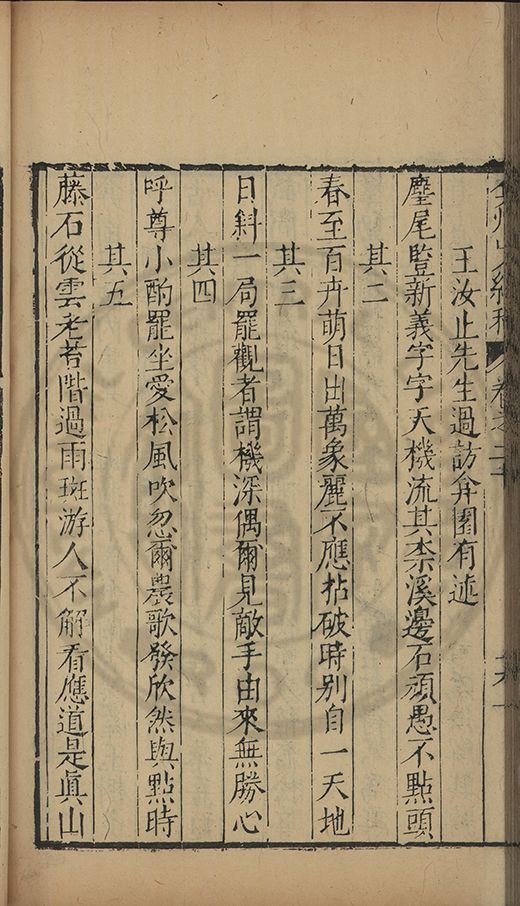 王汝止先生過訪弇園有述
麈尾豎新義字字天機流其柰溪邊石頑愚不點頭
其二
春至百卉萌日出萬象麗不應拈破時别自一天地
其三
日斜一局罷觀者謂機深偶爾見敵手由來無勝心
其四
呼尊小酌罷坐愛松風吹忽爾農歌發欣然與點時
其五
藤石從雲老苔階過雨斑游人不解看應道是眞山